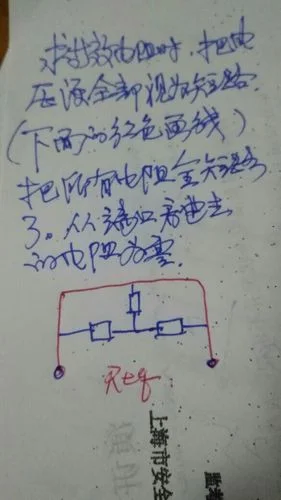 求等效电阻时，把电
压源全部视为短路.
(下面的红色画线)
把所有电阻全短路
了。从端口看进去
的电阻为零.
Req
上海市安全